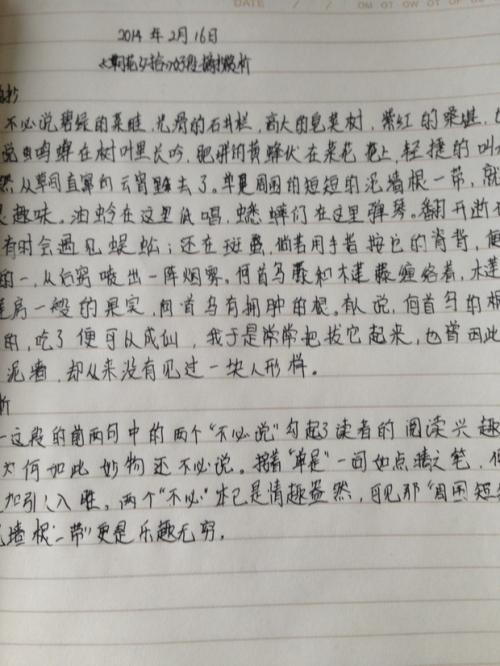 DATE
2014年2月16日
《朝花夕拾》好段摘抄赏析
抄
不必说碧绿的菜畦,光滑的石井栏,高大的皂荚树,紫红的桑椹,也
说虫鸣蝉在树叶里长吟,肥胖的黄蜂伏在菜花花上,轻捷的叫
然从草间直窜向云霄里去了。单是周围的短短的泥墙根一带,就
趣味。油蛉在这里低唱,蟋蟀们在这里弹琴。翻开断
有时会遇见蜈蚣;还有斑蝥,倘若用手指按它的脊背,便
的一,从后窍喷出一阵烟雾。何首乌藤和木莲藤缠络着,木莲
房一般的果实,何首乌有拥肿的根。有人说,何首乌的根
的,吃了便可以成仙,我于是常常把拔它起来,也曾因此
泥墙,却从来没有见过一块人形样。
析
一这段的前两句中的两个“不必说”勾起了读者的阅读兴趣
为何如此妙物还不必说。接着“单是”一词如点睛之笔,
加引人入胜。两个“不必”本已是情趣盎然,可见那“周围短
墙根一带”更是乐趣无穷.